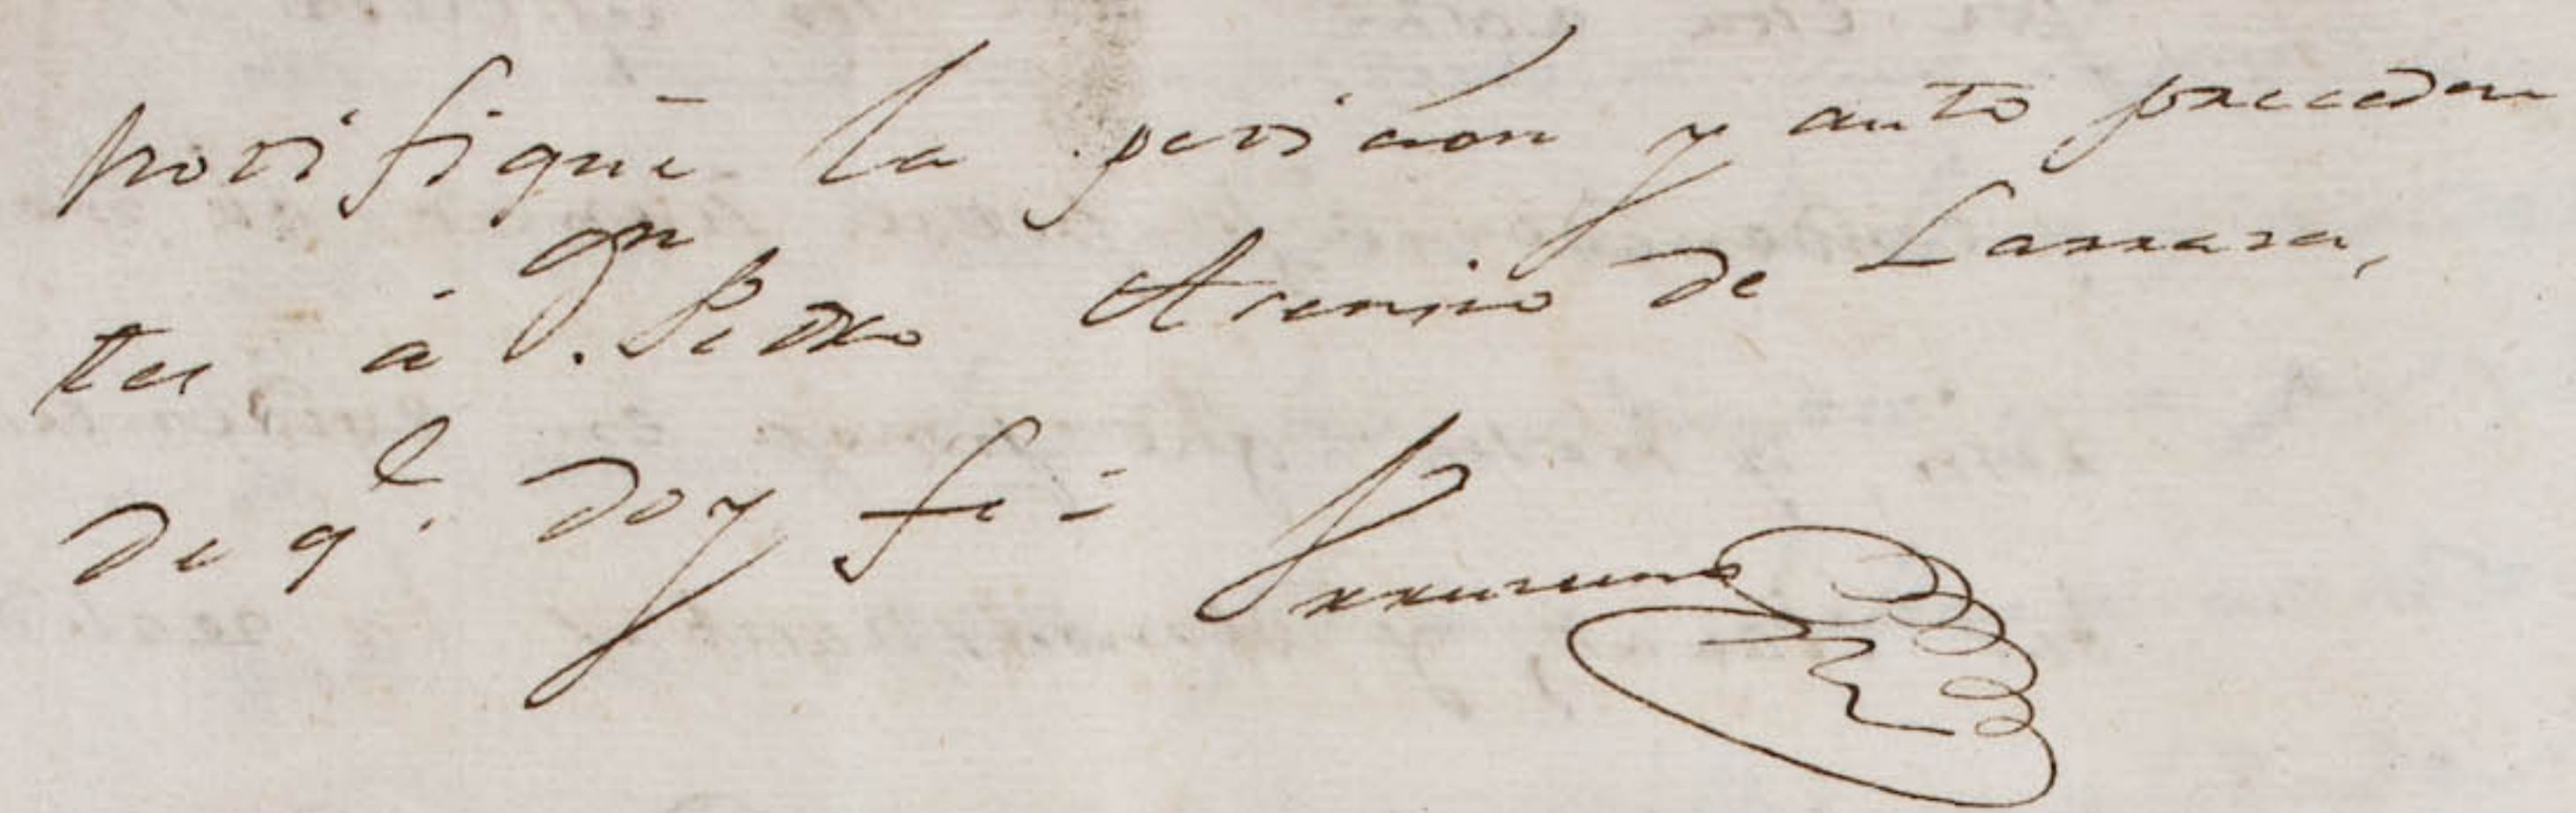 notifiqué la petición y auto preceden
tes á Dn. Pedro Asensio de Larrara,
de qe. doy fé=